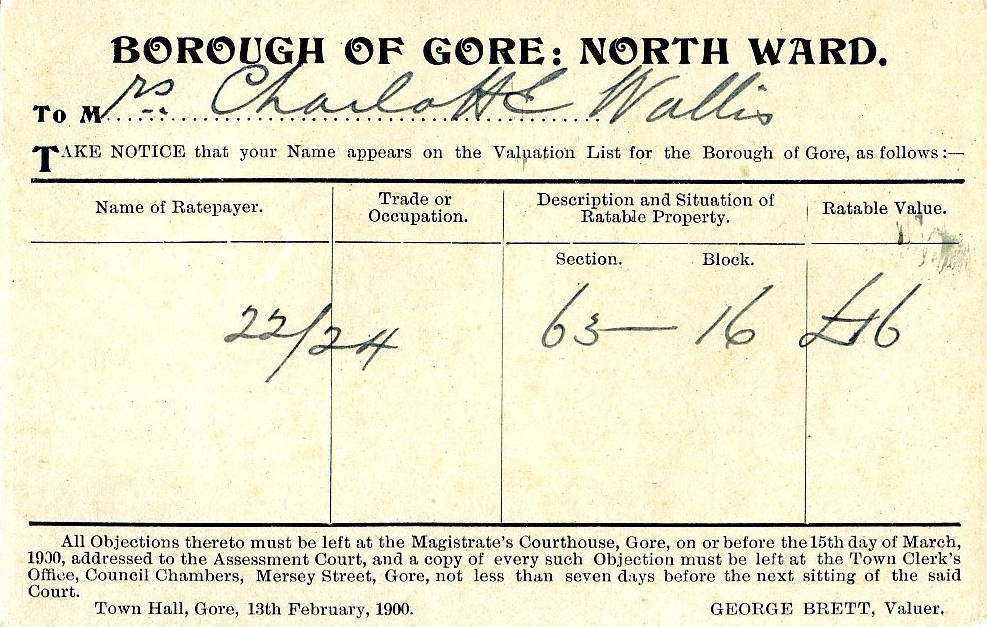 BOROUGH OF GORE: NORTH WARD.
To Mrs. Charlotte Wallis
TAKE NOTICE that your Name appears on the Valuation List for the Borough of Gore, as follows:—
Name of Ratepayer. Trade or Occupation. Description and Situation of Ratable Property. Ratable Value.
Section. Block.
22/24 63 — 16 £16
All Objections thereto must be left at the Magistrate's Courthouse, Gore, on or before the 15th day of March,
1900, addressed to the Assessment Court, and a copy of every such Objection must be left at the Town Clerk's
Office, Council Chambers, Mersey Street, Gore, not less than seven days before the next sitting of the said
Court.
Town Hall, Gore, 13th February, 1900. GEORGE BRETT, Valuer.